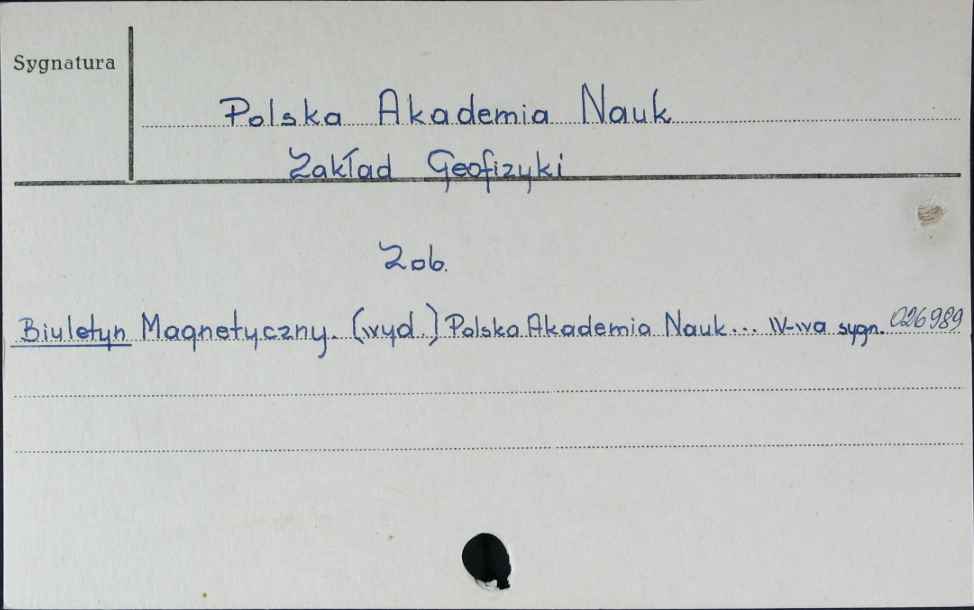 Sygnatura
Polska Akademia Nauk
Zakład Geofizyki
Zob.
Biuletyn Magnetyczny. (wyd.) Polska Akademia Nauk... W-wa sygn. 026989